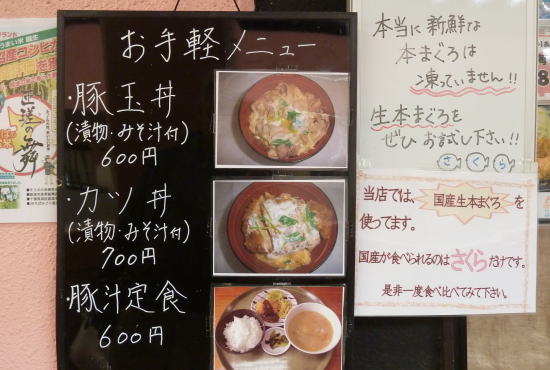 お手軽メニュー
・豚玉丼
(漬物・みそ汁付)
600円
・カツ丼
(漬物・みそ汁付)
700円
・豚汁定食
600円
本当に新鮮な
本まぐろは
凍っていません!!
生本まぐろを
ぜひ お試し下さい!!
さくら
当店では、国産生本まぐろを
使ってます。
国産が食べられるのはさくらだけです。
是非一度食べ比べてみて下さい。